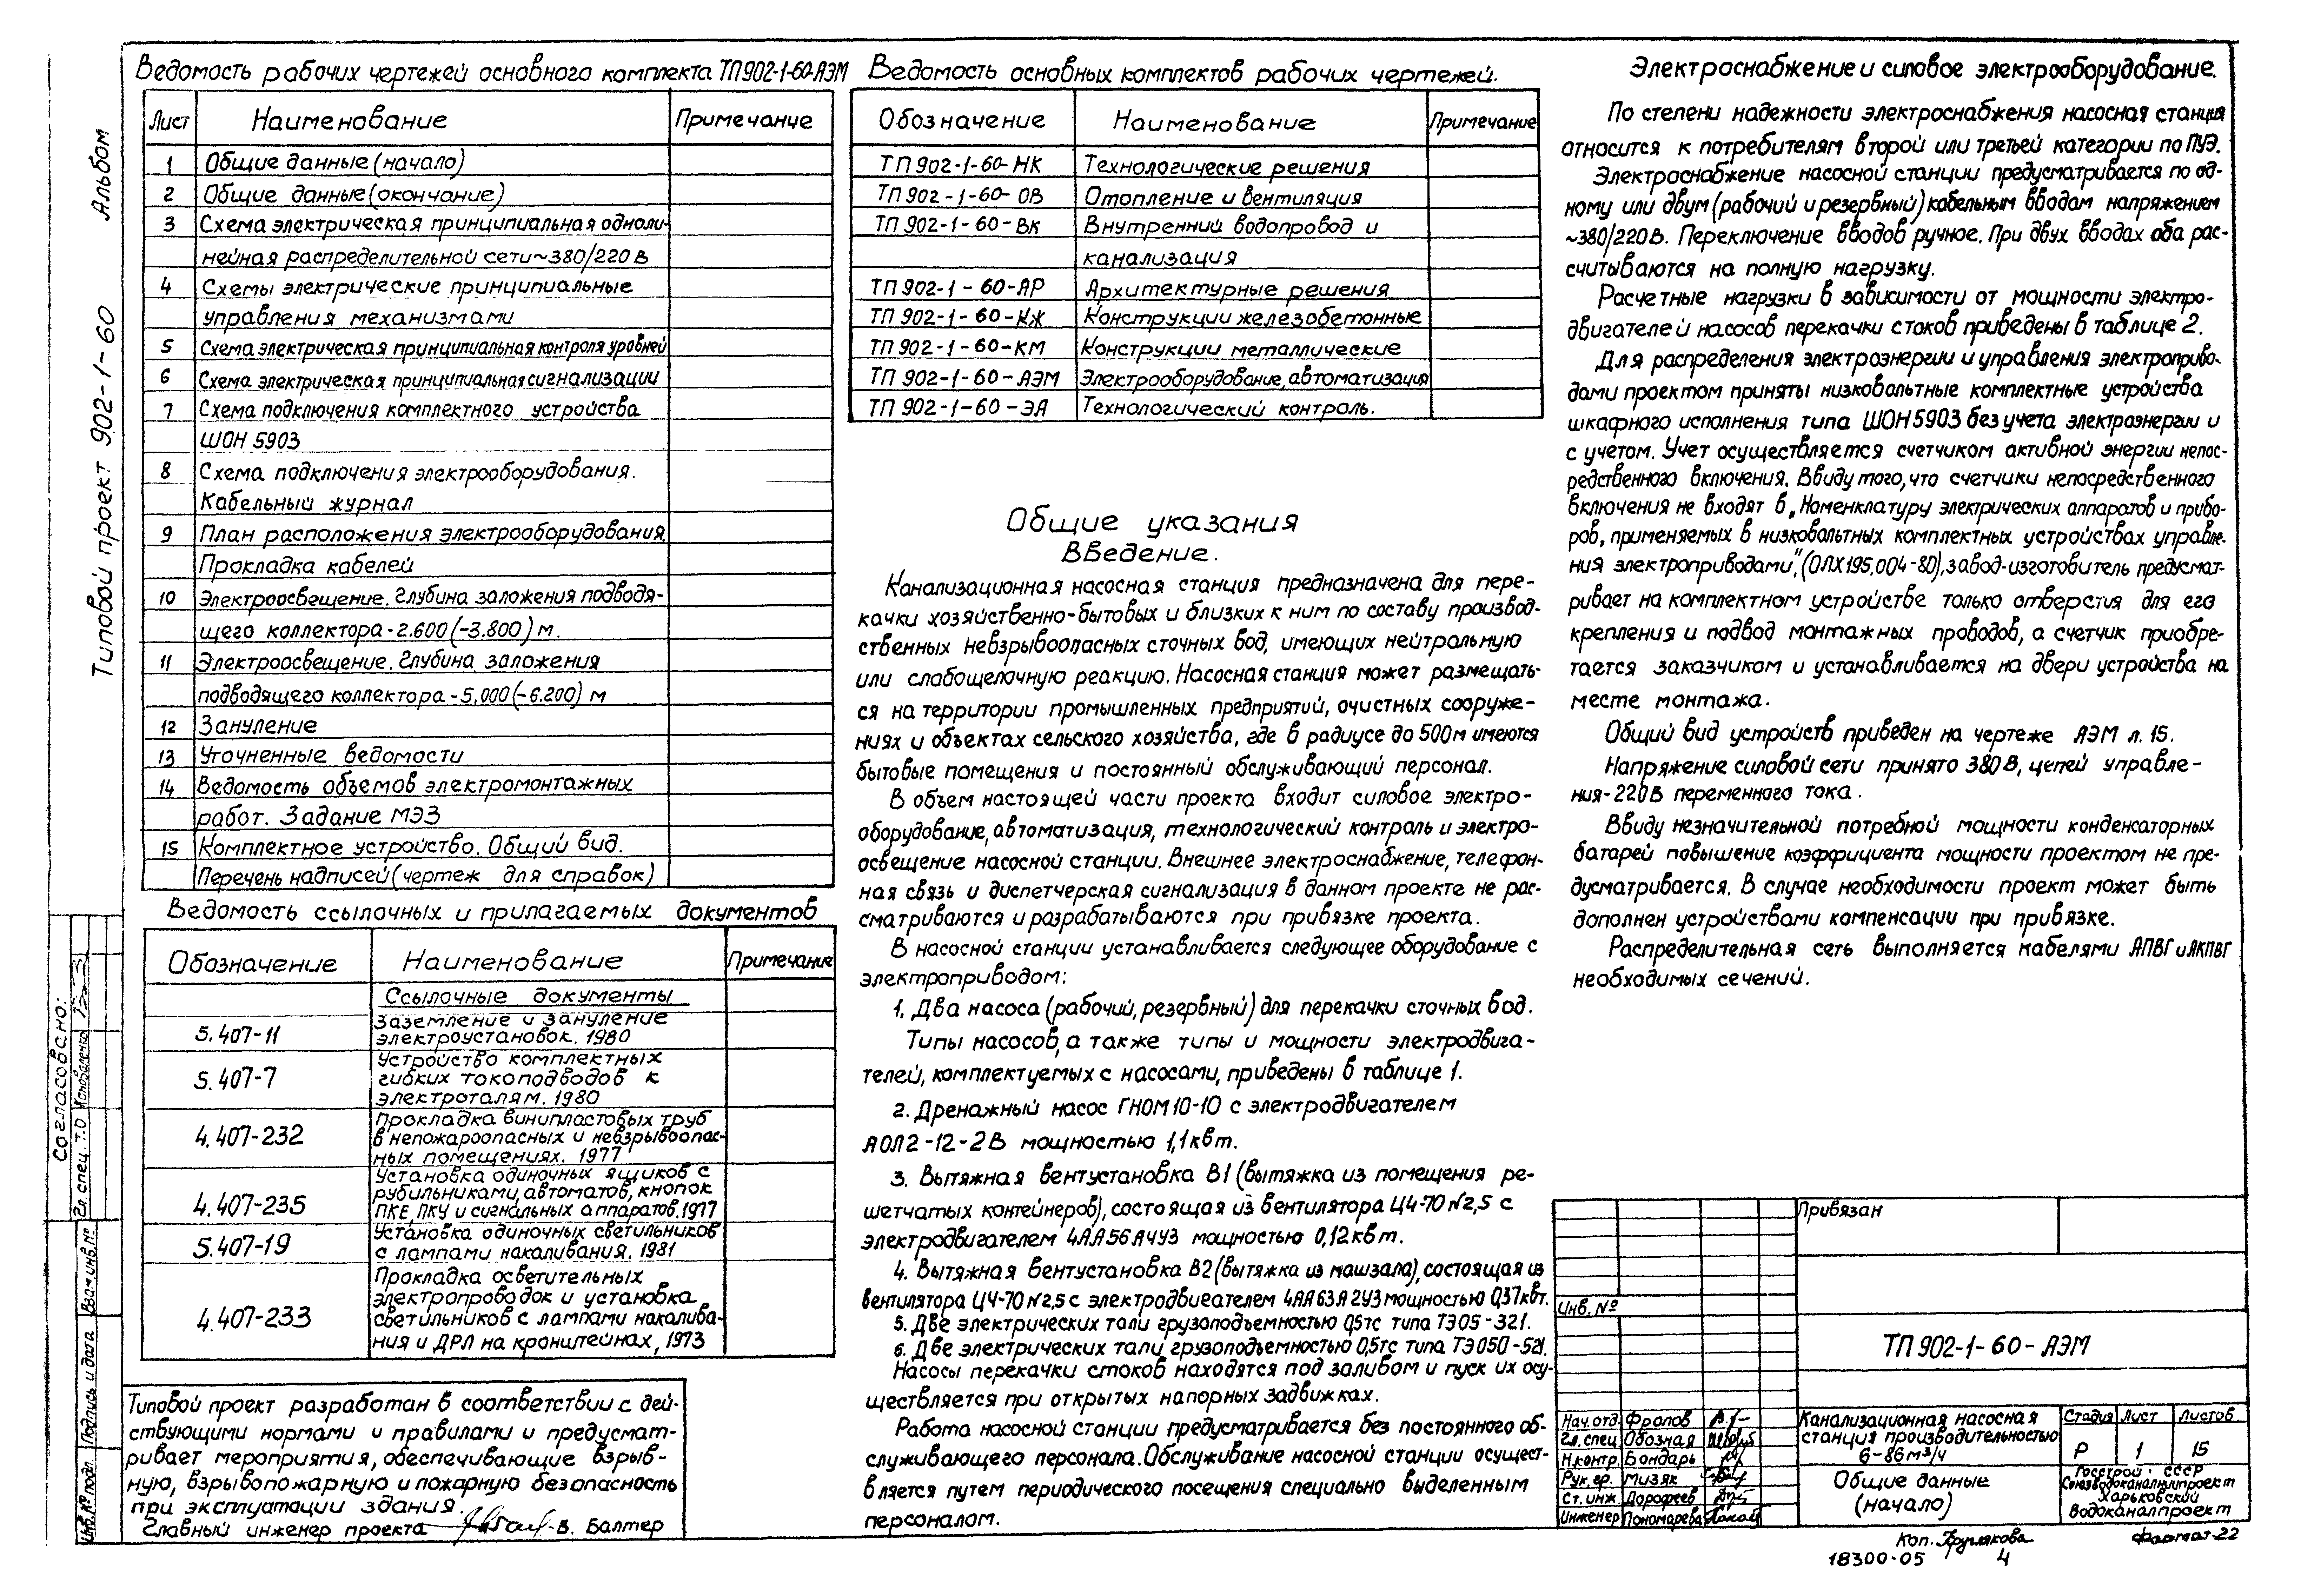 Альбом
Типовой проект 902-1-60
Ведомость рабочих чертежей основного комплекта ТП902-1-60-АЭМ
Лист Наименование Примечание
1 Общие данные (начало)
2 Общие данные (окончание)
3 Схема электрическая принципиальная одноли-
нейная распределительной сети ~380/220В
4 Схемы электрические принципиальные
управления механизмами
5 Схема электрическая принципиальная контроля уровней
6 Схема электрическая принципиальная сигнализации
7 Схема подключения комплектного устройства
ШОН 5903
8 Схема подключения электрооборудования.
Кабельный журнал
9 План расположения электрооборудования.
Прокладка кабелей
10 Электроосвещение. Глубина заложения подводя-
щего коллектора -2.600 (-3.800) м.
11 Электроосвещение. Глубина заложения
подводящего коллектора -5,000 (-6.200) м
12 Зануление
13 Уточненные ведомости
14 Ведомость объемов электромонтажных
работ. Задание МЭЗ
15 Комплектное устройство. Общий вид.
Перечень надписей (чертеж для справок)
Ведомость ссылочных и прилагаемых документов
Обозначение Наименование Примечание
Ссылочные документы
5.407-11 Заземление и зануление
электроустановок. 1980
5.407-7 Устройство комплектных
гибких токоподводов к
электроталям. 1980
4.407-232 Прокладка винипластовых труб
в непожароопасных и невзрывоопас-
ных помещениях. 1977
4.407-235 Установка одиночных ящиков с
рубильниками, автоматов, кнопок
ПКЕ, ПКУ и сигнальных аппаратов. 1977
5.407-19 Установка одиночных светильников
с лампами накаливания. 1981
4.407-233 Прокладка осветительных
электропроводок и установка
светильников с лампами накалива-
ния и ДРЛ на кронштейнах, 1973
Типовой проект разработан в соответствии с дей-
ствующими нормами и правилами и предусмат-
ривает мероприятия, обеспечивающие взрыв-
ную, взрывопожарную и пожарную безопасность
при эксплуатации здания.
Главный инженер проекта В. Балтер
Ведомость основных комплектов рабочих чертежей.
Обозначение Наименование Примечание
ТП 902-1-60-НК Технологические решения
ТП 902-1-60-ОВ Отопление и вентиляция
ТП 902-1-60-ВК Внутренний водопровод и
канализация
ТП 902-1-60-АР Архитектурные решения
ТП 902-1-60-КЖ Конструкции железобетонные
ТП 902-1-60-КМ Конструкции металлические
ТП 902-1-60-АЭМ Электрооборудование, автоматизация
ТП 902-1-60-ЭА Технологический контроль.
Общие указания
Введение.
Канализационная насосная станция предназначена для пере-
качки хозяйственно-бытовых и близких к ним по составу производ-
ственных невзрывоопасных сточных вод, имеющих нейтральную
или слабощелочную реакцию. Насосная станция может размещать-
ся на территории промышленных предприятий, очистных сооруже-
ниях и объектах сельского хозяйства, где в радиусе до 500м имеются
бытовые помещения и постоянный обслуживающий персонал.
В объем настоящей части проекта входит силовое электро-
оборудование, автоматизация, технологический контроль и электро-
освещение насосной станции. Внешнее электроснабжение, телефон-
ная связь и диспетчерская сигнализация в данном проекте не рас-
сматриваются и разрабатываются при привязке проекта.
В насосной станции устанавливается следующее оборудование с
электроприводом:
1. Два насоса (рабочий, резервный) для перекачки сточных вод.
Типы насосов, а также типы и мощности электродвига-
телей, комплектуемых с насосами, приведены в таблице 1.
2. Дренажный насос ГНОМ 10-10 с электродвигателем
АОЛ2-12-2В мощностью 1,1квт.
3. Вытяжная вентустановка В1 (вытяжка из помещения ре-
шетчатых контейнеров), состоящая из вентилятора Ц4-70 №2,5 с
электродвигателем 4АА56А4У3 мощностью 0,12квт.
4. Вытяжная вентустановка В2 (вытяжка из машзала), состоящая из
вентилятора Ц4-70 №2,5 с электродвигателем 4АА63А2У3 мощностью 0,37квт.
5. Две электрических тали грузоподъемностью 0,5тс типа ТЭ05-321.
6. Две электрических тали грузоподъемностью 0,5тс типа ТЭ050-521.
Насосы перекачки стоков находятся под заливом и пуск их осу-
ществляется при открытых напорных задвижках.
Работа насосной станции предусматривается без постоянного об-
служивающего персонала. Обслуживание насосной станции осущест-
вляется путем периодического посещения специально выделенным
персоналом.
Электроснабжение и силовое электрооборудование.
По степени надежности электроснабжения насосная станция
относится к потребителям второй или третьей категории по ПУЭ.
Электроснабжение насосной станции предусматривается по од-
ному или двум (рабочий и резервный) кабельным вводам напряжением
~380/220В. Переключение вводов ручное. При двух вводах оба рас-
считываются на полную нагрузку.
Расчетные нагрузки в зависимости от мощности электро-
двигателей насосов перекачки стоков приведены в таблице 2.
Для распределения электроэнергии и управления электроприво-
дами проектом приняты низковольтные комплектные устройства
шкафного исполнения типа ШОН5903 без учета электроэнергии и
с учетом. Учет осуществляется счетчиком активной энергии непос-
редственного включения. Ввиду того, что счетчики непосредственного
включения не входят в „Номенклатуру электрических аппаратов и прибо-
ров, применяемых в низковольтных комплектных устройствах управле-
ния электроприводами," (ОЛХ195.004-80), завод-изготовитель предусмат-
ривает на комплектном устройстве только отверстия для его
крепления и подвод монтажных проводов, а счетчик приобре-
тается заказчиком и устанавливается на двери устройства на
месте монтажа.
Общий вид устройств приведен на чертеже АЭМ л. 15.
Напряжение силовой сети принято 380В, цепей управле-
ния-220В переменного тока.
Ввиду незначительной потребной мощности конденсаторных
батарей повышение коэффициента мощности проектом не пре-
дусматривается. В случае необходимости проект может быть
дополнен устройствами компенсации при привязке.
Распределительная сеть выполняется кабелями АПВГ и АКПВГ
необходимых сечений.
Привязан
Инв. №
ТП 902-1-60-АЭМ
Нач. отд. Фролов
Гл. спец. Обозная
Н.контр. Бондарь
Рук. гр. Мизяк
Ст. инж. Дорофеев
Инженер Пономарева
Канализационная насосная
станция производительностью
6-86м³/ч
Стадия Лист Листов
Р 1 15
Общие данные
(начало)
Госстрой СССР
Союзводоканалниипроект
Харьковский
Водоканалпроект
Коп. Круглякова Формат 22
18300-05 4
Согласовано:
Гл. спец. Т.О Коноваленко
Взам. инв. №
Подпись и дата
Инв. № подл.